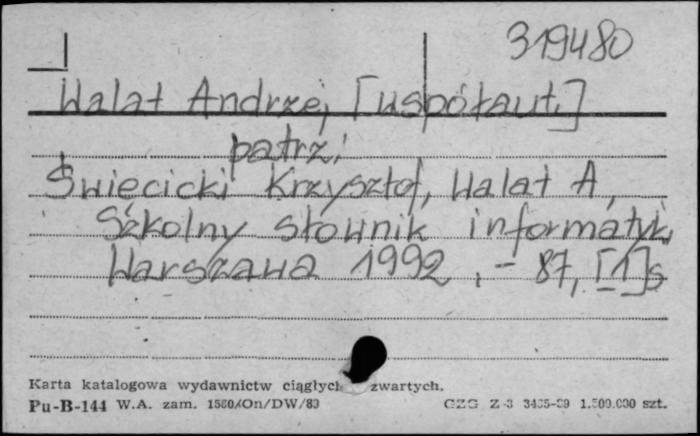 319480
Walat Andrzej [współaut.]
patrz:
Święcicki Krzysztof, Walat A,
Szkolny słownik informatyki
Warszawa 1992. - 87, [1]s
Karta katalogowa wydawnictw ciągłych zwartych.
Pu-B-144 W.A. zam. /On/DW/
GZG Z-3 1.500.000 szt.